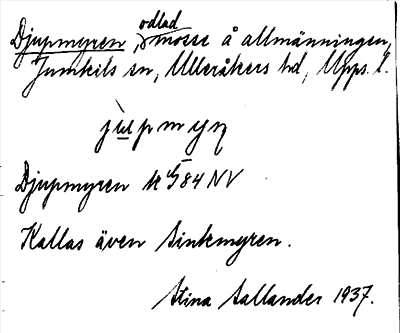 Djupmyren, odlad mosse å allmänningen,
Jumkils sn, Ulleråkers hd, Upps. l.
jùpmyn
Djupmyren k 84 NV
Kallas även Sinkmyren.
Stina Sallander 1937.